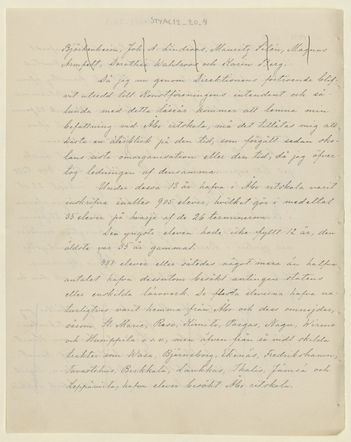 Björkenheim, Joh. A. Lindroos, Mauritz Folin, Magnus
Armfelt, Dorothea Wahlroos och Karin Berg.
Då jag nu genom Direktionens förtroende blif-
vit utsedd till Konstföreningens intendent och så-
lunda med detta läsår kommer att lemna min
befattning vid Åbo ritskola, må det tillåtas mig att
kasta en återblick på den tid, som förgått sedan sko-
lans sista omorganisation eller den tid, då jag öfver-
tog ledningen af densamma.
Under dessa 13 år hafva i Åbo ritskola varit
inskrifna inalles 905 elever, hvilket gör i medeltal
35 elever på hvarje af de 26 terminerna.
Den yngste eleven hade icke fyllt 12 år, den
äldste var 55 år gammal.
elever eller således något mera än halfva
antalet hafva dessutom besökt antingen statens
eller enskilda läroverk. De flesta eleverna hafva na-
turligtvis varit hemma från Åbo och dess omnejder,
såsom St Marie, Reso, Kimito, Pargas, Nagu, Virmo
och Humppila o.s.v., men äfven från så vidt skilda
trakter som Wasa, Björneborg, Ekenäs, Fredrikshamn,
Tavastehus, Birkkala, Jämsä och
Leppävirta, hafva elever besökt Åbo ritskola.